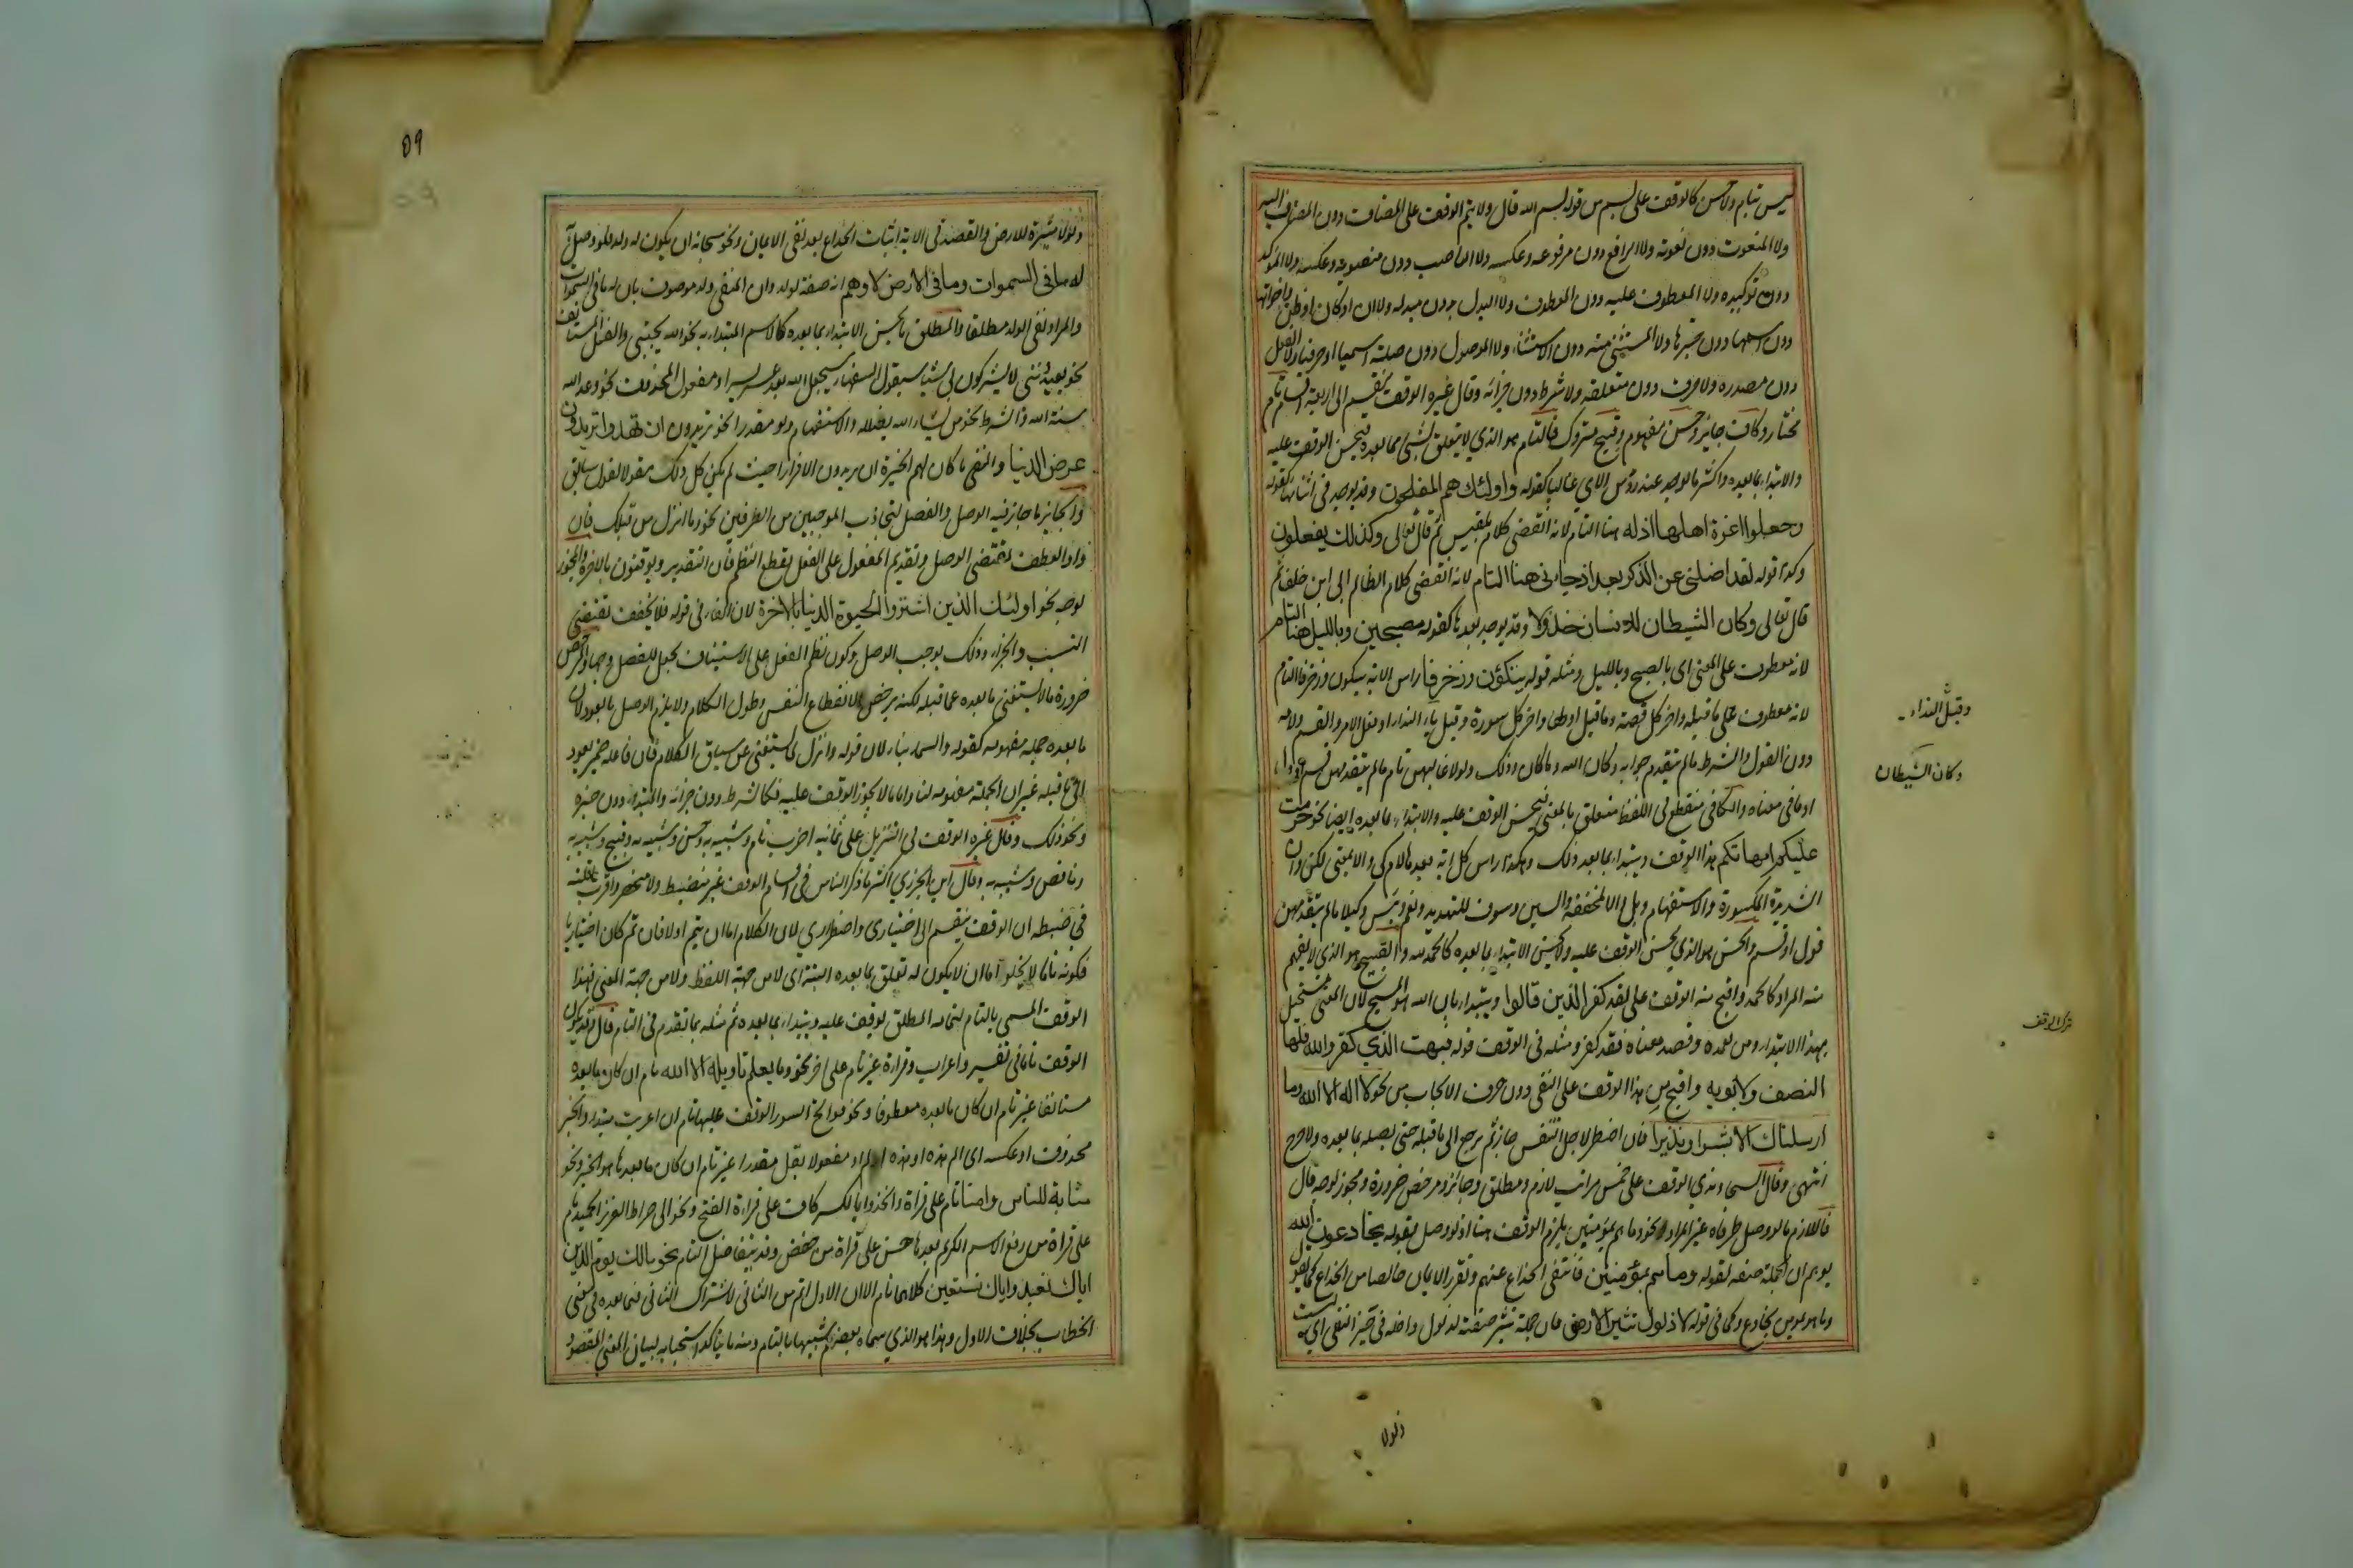 ليس بتام ولا حسن كالوقف على بسم من قوله بسم الله قال ولا يتم الوقف على المضاف دون المضاف اليه
ولا المنعوت دون نعوته ولا الرافع دون مرفوعه وعكسه ولا الناصب دون منصوبه وعكسه ولا المؤكد
دون توكيده ولا المعطوف عليه دون المعطوف ولا البدل دون مبدله ولا ان او كان او ظن واخواتها
دون اسمها دون خبرها ولا المستثنى منه دون الاستثناء ولا الموصول دون صلته اسميا او حرفيا ولا الفعل
دون مصدره ولا حرف دون متعلقه ولا شرط دون جزائه وقال غيره الوقف ينقسم الى اربعة اقسام تام
مختار وكاف جايز وحسن مفهوم وقبيح متروك فالتام هو الذي لا يتعلق بشئ مما بعده فيحسن الوقف عليه
والابتداء بما بعده واكثر ما يوجد عند رؤس الاي غالبا كقوله واولئك هم المفلحون وقد يوجد في اثنائها كقوله
وجعلوا اعزة اهلها اذلة هنا التام لانه انقضى كلام بلقيس ثم قال تعالى وكذلك يفعلون
وكذا قوله لقد اضلني عن الذكر بعد اذ جاءني هنا التام لانه انقضى كلام الظالم ابي ابن خلف ثم
قال تعالى وكان الشيطان للانسان خذولا وقد يوجد بعدها كقوله مصبحين وبالليل هنا التام
لانه معطوف على المعنى اي بالصبح وبالليل ومثله قوله يتكؤن وزخرفا راس الاية يتكون وزخرفا التام
لانه معطوف على ما قبله واخر كل قصة وما قبل اولها واخر كل سورة وقبل ياء النداء او فعل الامر والقسم ولامه
دون القول والشرط ما لم يتقدم جوابه وكان الله وما كان وذلك ولولا غالبهن تام ما لم يتقدمهن قسم او قول
او ما في معناه والكافي منقطع في اللفظ متعلق بالمعنى فيحسن الوقف عليه والابتداء بما بعده ايضا نحو حرمت
عليكم امهاتكم هذا الوقف ويبتدا بما بعد ذلك وهكذا راس كل اية بعدها لام كي والا بمعنى لكن وان
الشديدة المكسورة والاستفهام وبل والا المخففة والسين وسوف للتهديد ونعم وبئس وكيلا ما لم يتقدمهن
قول او قسم والحسن هو الذي يحسن الوقف عليه ولا يحسن الابتداء بما بعده كالحمد لله والقبيح هو الذي لا يفهم
منه المراد كالحمد واقبح منه الوقف على لقد كفر الذين قالوا ويبتدا بان الله هو المسيح لان المعنى مستحيل
بهذا الابتداء ومن تعمده وقصد معناه فقد كفر ومثله في الوقف قوله فبهت الذي كفر والله فلها
النصف ولابويه واقبح من هذا الوقف على النفي دون حرف الايجاب من نحو لا اله الا الله وما
ارسلناك الا مبشرا ونذيرا فان اضطر لاجل التنفس جاز ثم يرجع الى ما قبله حتى يصله بما بعده ولا حرج
انتهى وقال السجاوندي الوقف على خمس مراتب لازم ومطلق وجائز ومرخص ضرورة ومجوز لوجه قال
فاللازم ما لو وصل طرفاه غير المراد نحو وما هم بمؤمنين يلزم الوقف هنا اذ لو وصل بقوله يخادعون الله
يوهم ان الجملة صفة لقوله وما هم بمؤمنين فانتفى الخداع عنهم وتقرر الايمان خالصا من الخداع كما يقول
وما هو بمؤمن بخادع وكما في قوله لا ذلول تثير الارض فان جملة تثير صفة لذلول واخله في حيز النفي اي ليست
وقبل النداء
وكان الشيطان
ترك الوقف
ذلولا
٥٩
ذلولا مثيرة للارض والقصد في الاية اثبات الخداع بعد نفي الايمان ونحو سبحانه ان يكون له ولد فلو وصل
له ما في السموات وما في الارض لا وهم انه صفة لولد وان المنفي ولد موصوف بان له ما في السموات
والمراد نفي الولد مطلقا والمطلق ما يحسن الابتداء بما بعده كالاسم المبتدا به نحو الله يجتبي والفعل المستانف
نحو يعبدونني لا يشركون بي شيئا سيقول السفهاء سيجعل الله بعد عسر يسرا ومفعول المحذوف نحو وعد الله
سنة الله والشرط نحو من يشاء الله يضلله والاستفهام ولو مقدرا نحو تريدون ان تهدوا تريدون
عرض الدنيا والنفي ما كان لهم الخيرة ان يريدون الا فرارا حيث لم يكن كل ذلك مقولا لقول سابق
والجايز ما جاز فيه الوصل والفصل لتجاذب الموجبين من الطرفين نحو وما انزل من قبلك فان
واو العطف تقتضي الوصل وتقديم المفعول على الفعل يقطع النظم فان التقدير ويوقنون بالاخرة والمجوز
لوجه نحو اولئك الذين اشتروا الحيوة الدنيا بالاخرة لان الفاء في قوله فلا يخفف تقتضي
التسبب والجزاء وذلك يوجب الوصل وكون نظم الفعل على الاستيناف يجعل للفصل وجها والمرخص
ضرورة ما لا يستغني ما بعده عما قبله لكنه يرخص لانقطاع النفس وطول الكلام ولا يلزم الوصل بالعود لان
ما بعده جملة مفهومة كقوله والسماء بناء لان قوله وانزل لا يستغني عن سياق الكلام فان فاعله ضمير يعود
الى ما قبله غير ان الجملة مفهومة لنا واما ما لا يجوز الوقف عليه فكالشرط دون جزائه والمبتدا دون خبره
ونحو ذلك وقال غيره الوقف في التنزيل على ثمانية اضرب تام وشبيه به وحسن وشبيه به وقبيح وشبيه به
وناقص وشبيه به وقال ابن الجزري اكثر ما ذكر الناس في اقسام الوقف غير منضبط ولا منحصر واقرب ما قلته
في ضبطه ان الوقف ينقسم الى اختياري واضطراري لان الكلام اما ان يتم او لا فان تم كان اختياريا
فكونه تاما لا يخلوا اما ان لا يكون له تعلق بما بعده البتة اي لا من جهة اللفظ ولا من جهة المعنى فهذا
الوقف المسمى بالتام لتمامه المطلق يوقف عليه ويبتدا بما بعده ثم مثله بما تقدم في التام قال وقد يكون
الوقف تاما في تفسير واعراب وقراءة غير تام على اخر نحو وما يعلم تاويله الا الله تام ان كان ما بعده
مستانفا غير تام ان كان ما بعده معطوفا ونحو فواتح السور الوقف عليها تام ان اعربت مبتدا والخبر
محذوف او عكسه اي الم هذه او هذه الم او مفعولا بقل مقدرا غير تام ان كان ما بعدها هو الخبر ونحو
مثابة للناس وامنا تام على قراءة واتخذوا بالكسر كاف على قراءة الفتح ونحو الى صراط العزيز الحميد تام
على قراءة من رفع الاسم الكريم بعدها حسن على قراءة من خفض وقد يتفاضل التام نحو مالك يوم الدين
اياك نعبد واياك نستعين كلاهما تام الا ان الاول اتم من الثاني لاشتراك الثاني فيما بعده في معنى
الخطاب بخلاف الاول وهذا هو الذي سماه بعضهم شبيها بالتام ومنه ما يتاكد استحبابه لبيان المعنى المقصود